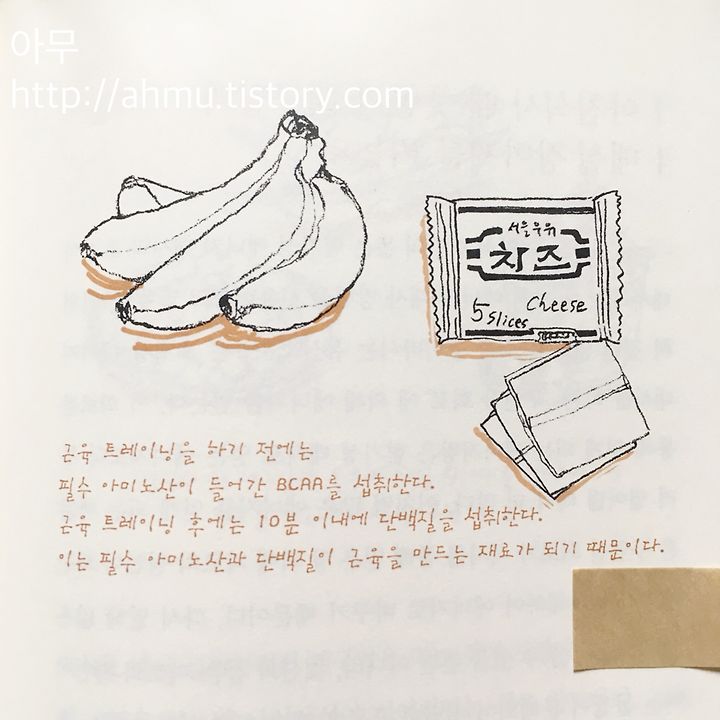 아무
http://ahmu.tistory.com
서울우유
치즈
5 slices
Cheese
근육 트레이닝을 하기 전에는
필수 아미노산이 들어간 BCAA를 섭취한다.
근육 트레이닝 후에는 10분 이내에 단백질을 섭취한다.
이는 필수 아미노산과 단백질이 근육을 만드는 재료가 되기 때문이다.